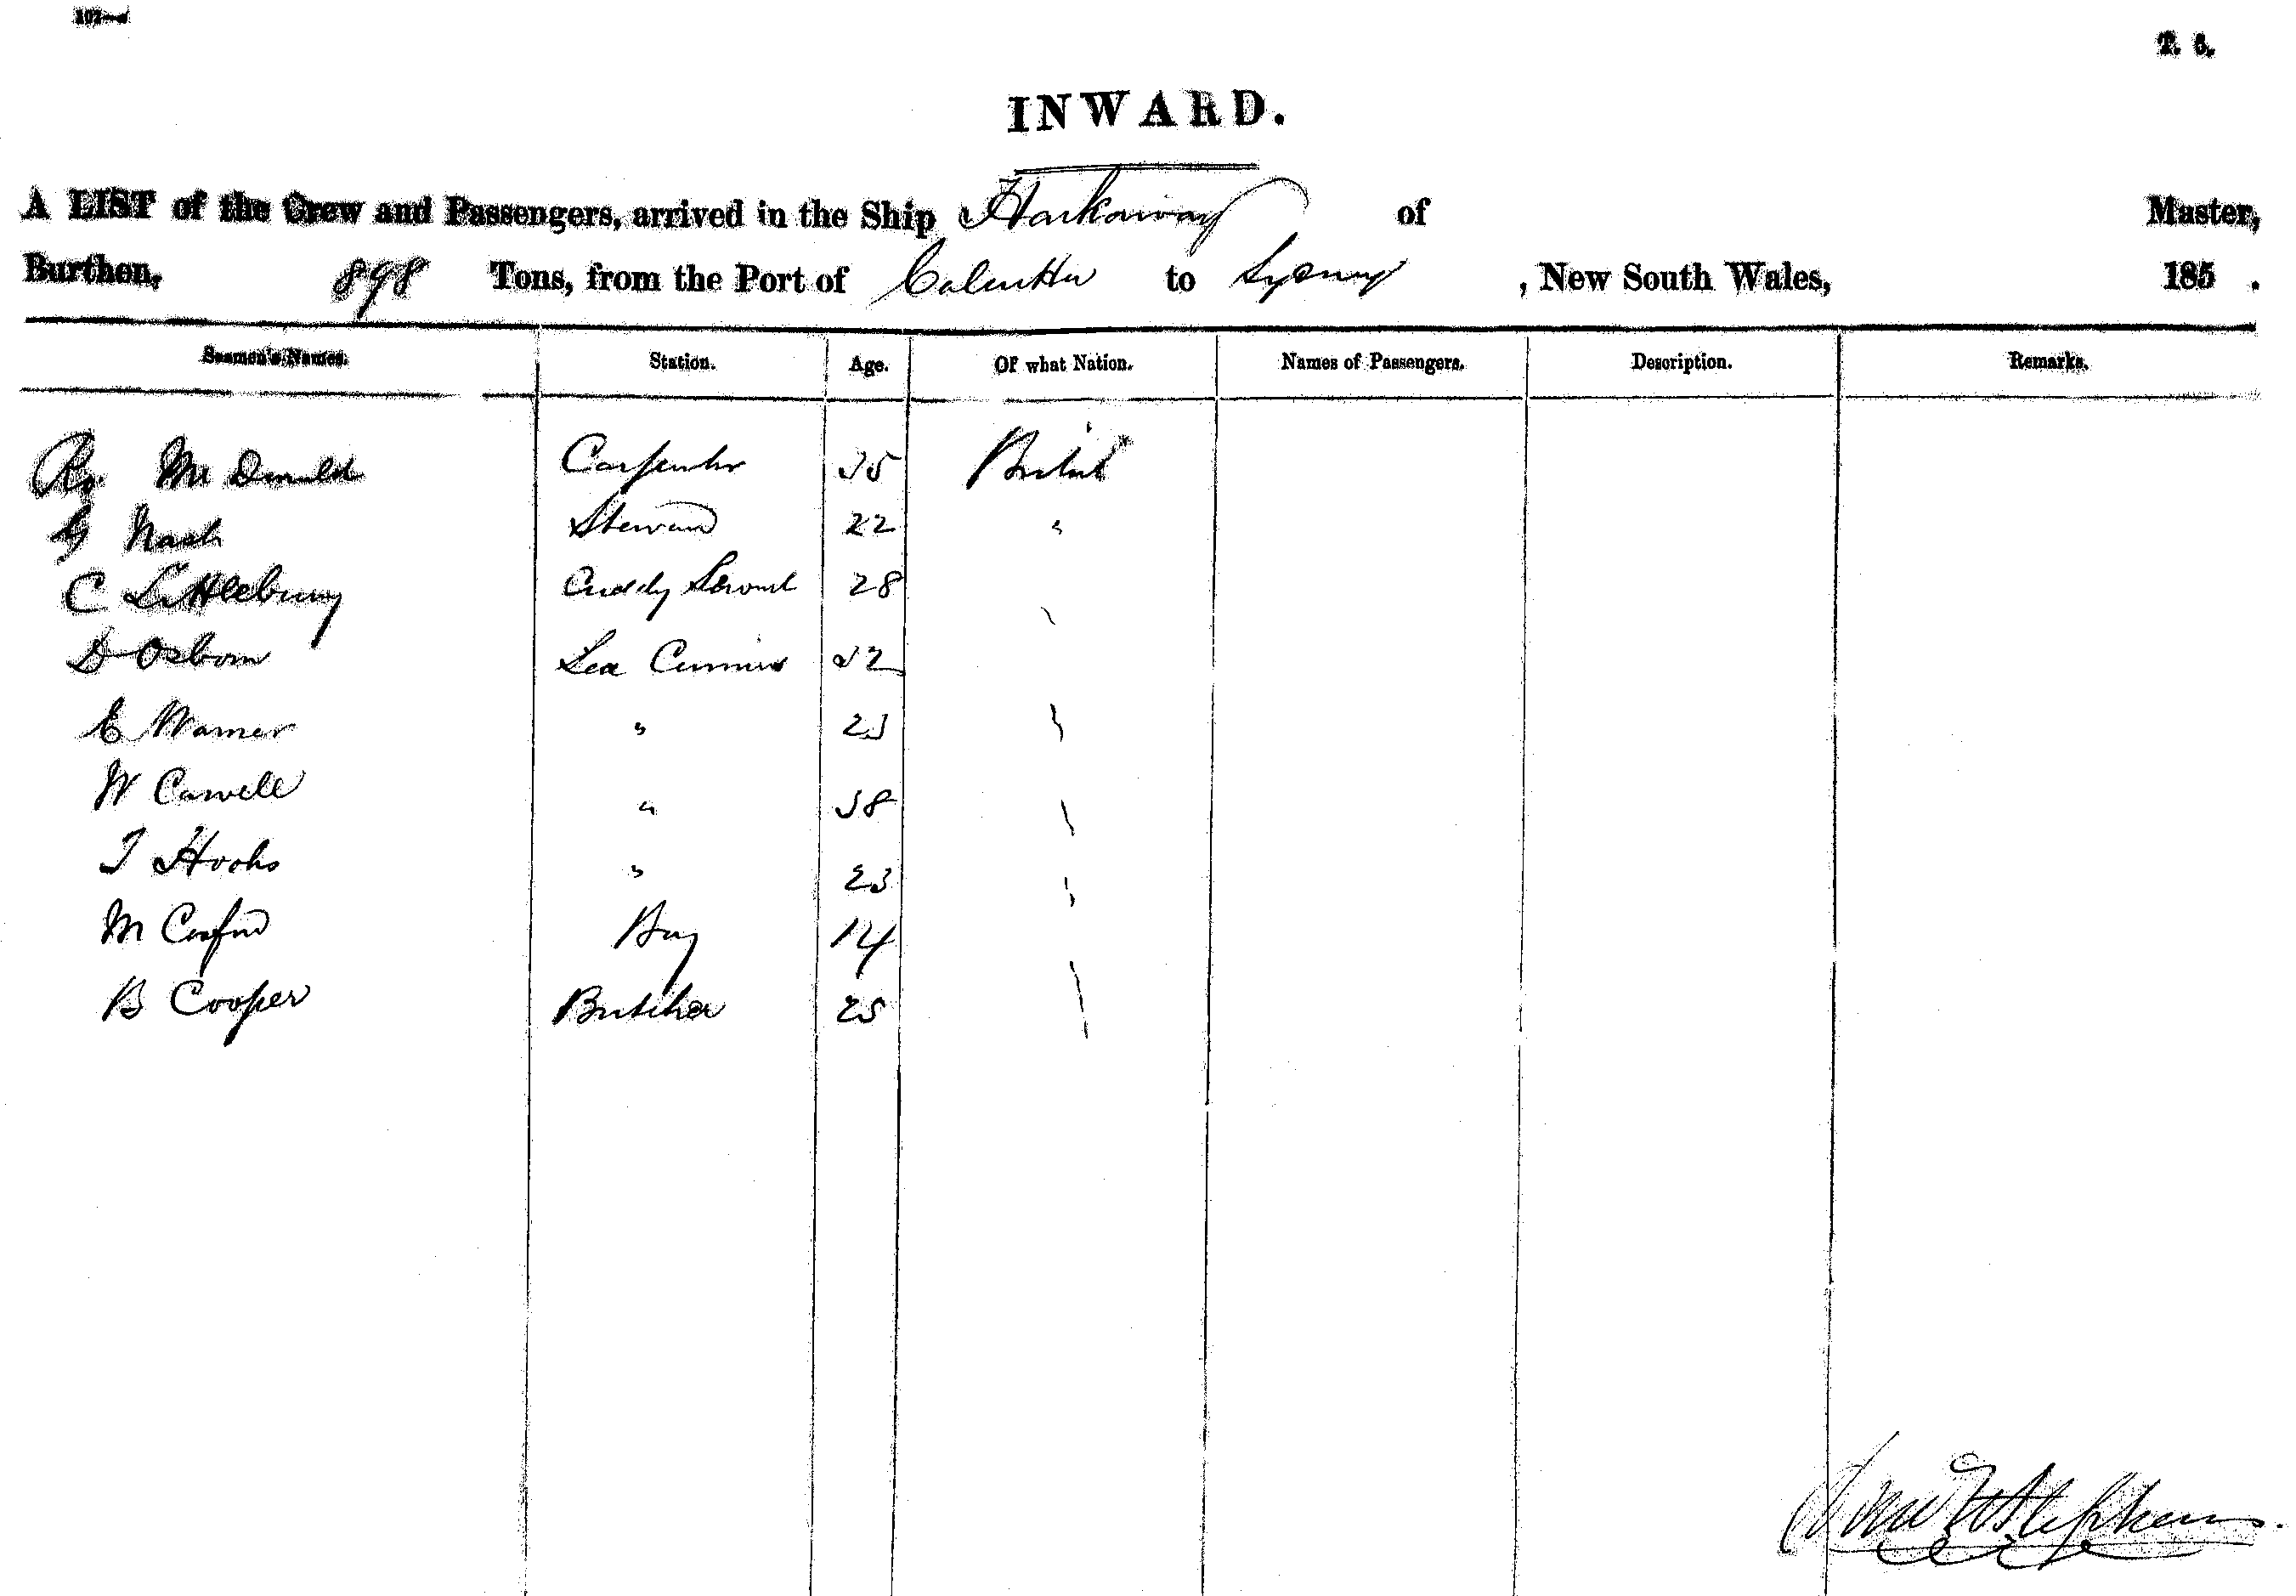 T. 5.
INWARD.
A LIST of the Crew and Passengers, arrived in the Ship Harkaway of Master,
Burthen, 898 Tons, from the Port of Calcutta to Sydney, New South Wales, 185 .
Seamen's Names. Station. Age. Of what Nation. Names of Passengers. Description. Remarks.
Ro McDonald Carpenter 35 British
G Nash Steward 22 "
C Littlebury Cuddy Servant 28 "
D Osborn Sea Cunnies 32
E Warner " 23 "
W Carvell " 38 "
T Hooks " 23 "
M Boy 14
B Cooper Butcher 25 "
Stephens.